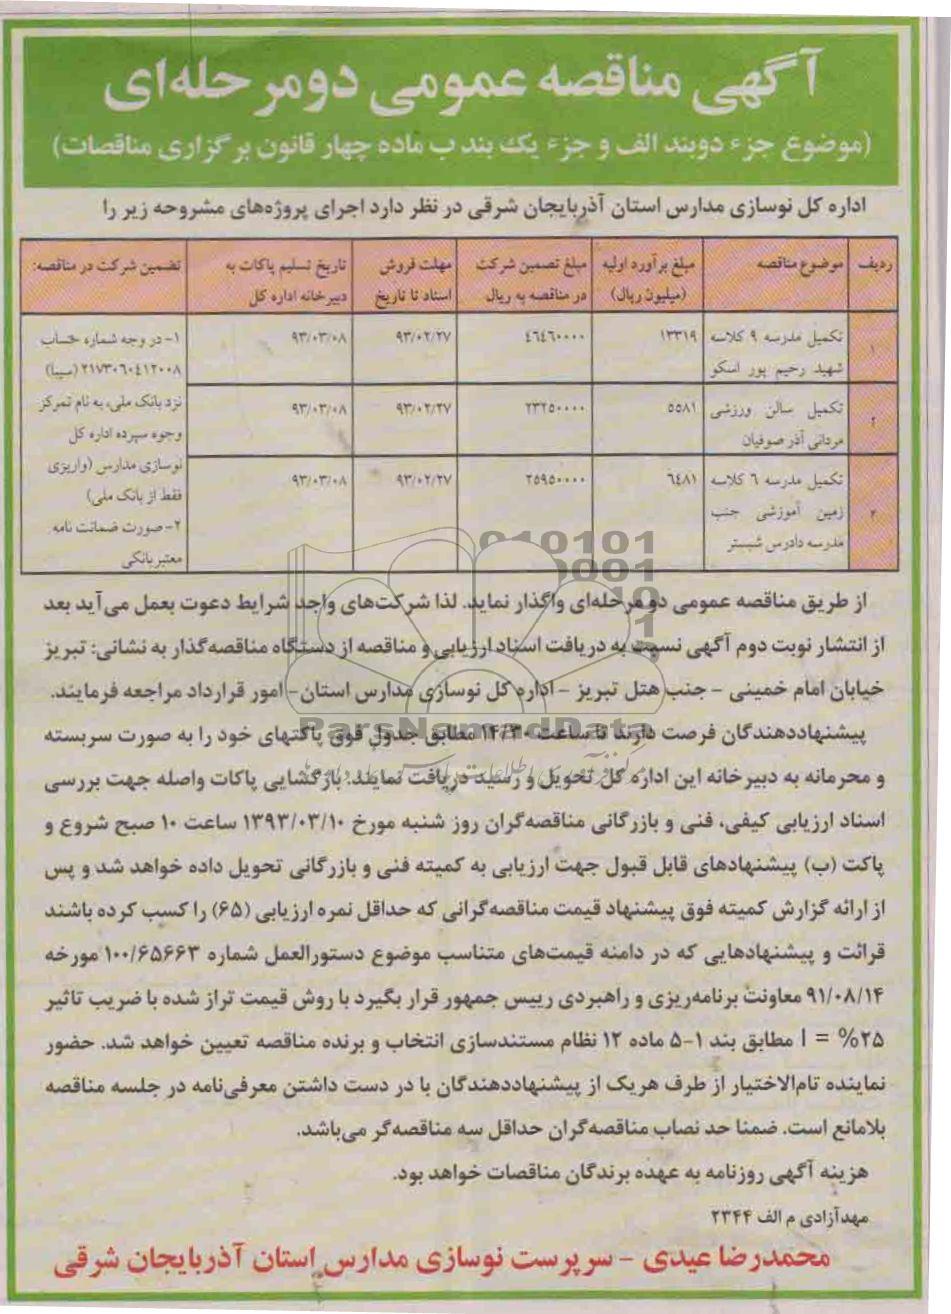 آگهی مناقصه عمومی دومرحله‌ای
(موضوع جزء دوبند الف و جزء یک بند ب ماده چهار قانون برگزاری مناقصات)
اداره کل نوسازی مدارس استان آذربایجان شرقی در نظر دارد اجرای پروژه‌های مشروحه زیر را
ردیف موضوع مناقصه مبلغ برآورد اولیه (میلیون ریال) مبلغ تضمین شرکت در مناقصه به ریال مهلت فروش اسناد تا تاریخ تاریخ تسلیم پاکات به دبیرخانه اداره کل تضمین شرکت در مناقصه:
۱ تکمیل مدرسه ۹ کلاسه شهید رحیم پور اسکو ۱۳۳۱۹ ۴۶۴۶۰۰۰۰ ۹۳/۰۲/۲۷ ۹۳/۰۳/۰۸
۲ تکمیل سالن ورزشی مردانی آذر صوفیان ۵۵۸۱ ۲۳۲۵۰۰۰۰ ۹۳/۰۲/۲۷ ۹۳/۰۳/۰۸
۳ تکمیل مدرسه ۶ کلاسه زمین آموزشی جنب مدرسه دادرس شبستر ۶۴۸۱ ۲۵۹۵۰۰۰۰ ۹۳/۰۲/۲۷ ۹۳/۰۳/۰۸
۱- در وجه شماره حساب
۲۱۷۳۰۶۰۴۱۲۰۰۸ (سیبا)
نزد بانک ملی، به نام تمرکز
وجوه سپرده اداره کل
نوسازی مدارس (واریزی
فقط از بانک ملی)
۲- صورت ضمانت نامه
معتبر بانکی
از طریق مناقصه عمومی دو مرحله‌ای واگذار نماید. لذا شرکت‌های واجد شرایط دعوت بعمل می‌آید بعد
از انتشار نوبت دوم آگهی نسبت به دریافت اسناد ارزیابی و مناقصه از دستگاه مناقصه‌گذار به نشانی: تبریز
خیابان امام خمینی - جنب هتل تبریز - اداره کل نوسازی مدارس استان- امور قرارداد مراجعه فرمایند.
پیشنهاددهندگان فرصت دارند تا ساعت ۱۴/۳۰ مطابق جدول فوق پاکتهای خود را به صورت سربسته
و محرمانه به دبیرخانه این اداره کل تحویل و رسید دریافت نمایند. بازگشایی پاکات واصله جهت بررسی
اسناد ارزیابی کیفی، فنی و بازرگانی مناقصه‌گران روز شنبه مورخ ۱۳۹۳/۰۳/۱۰ ساعت ۱۰ صبح شروع و
پاکت (ب) پیشنهادهای قابل قبول جهت ارزیابی به کمیته فنی و بازرگانی تحویل داده خواهد شد و پس
از ارائه گزارش کمیته فوق پیشنهاد قیمت مناقصه‌گرانی که حداقل نمره ارزیابی (۶۵) را کسب کرده باشند
قرائت و پیشنهادهایی که در دامنه قیمت‌های متناسب موضوع دستورالعمل شماره ۱۰۰/۶۵۶۶۳ مورخه
۹۱/۰۸/۱۴ معاونت برنامه‌ریزی و راهبردی رییس جمهور قرار بگیرد با روش قیمت تراز شده با ضریب تاثیر
۲۵% = I مطابق بند ۱-۵ ماده ۱۲ نظام مستندسازی انتخاب و برنده مناقصه تعیین خواهد شد. حضور
نماینده تام‌الاختیار از طرف هریک از پیشنهاددهندگان با در دست داشتن معرفی‌نامه در جلسه مناقصه
بلامانع است. ضمنا حد نصاب مناقصه‌گران حداقل سه مناقصه‌گر می‌باشد.
هزینه آگهی روزنامه به عهده برندگان مناقصات خواهد بود.
مهدآزادی م الف ۲۳۴۴
محمدرضا عیدی - سرپرست نوسازی مدارس استان آذربایجان شرقی
ParsNamadData